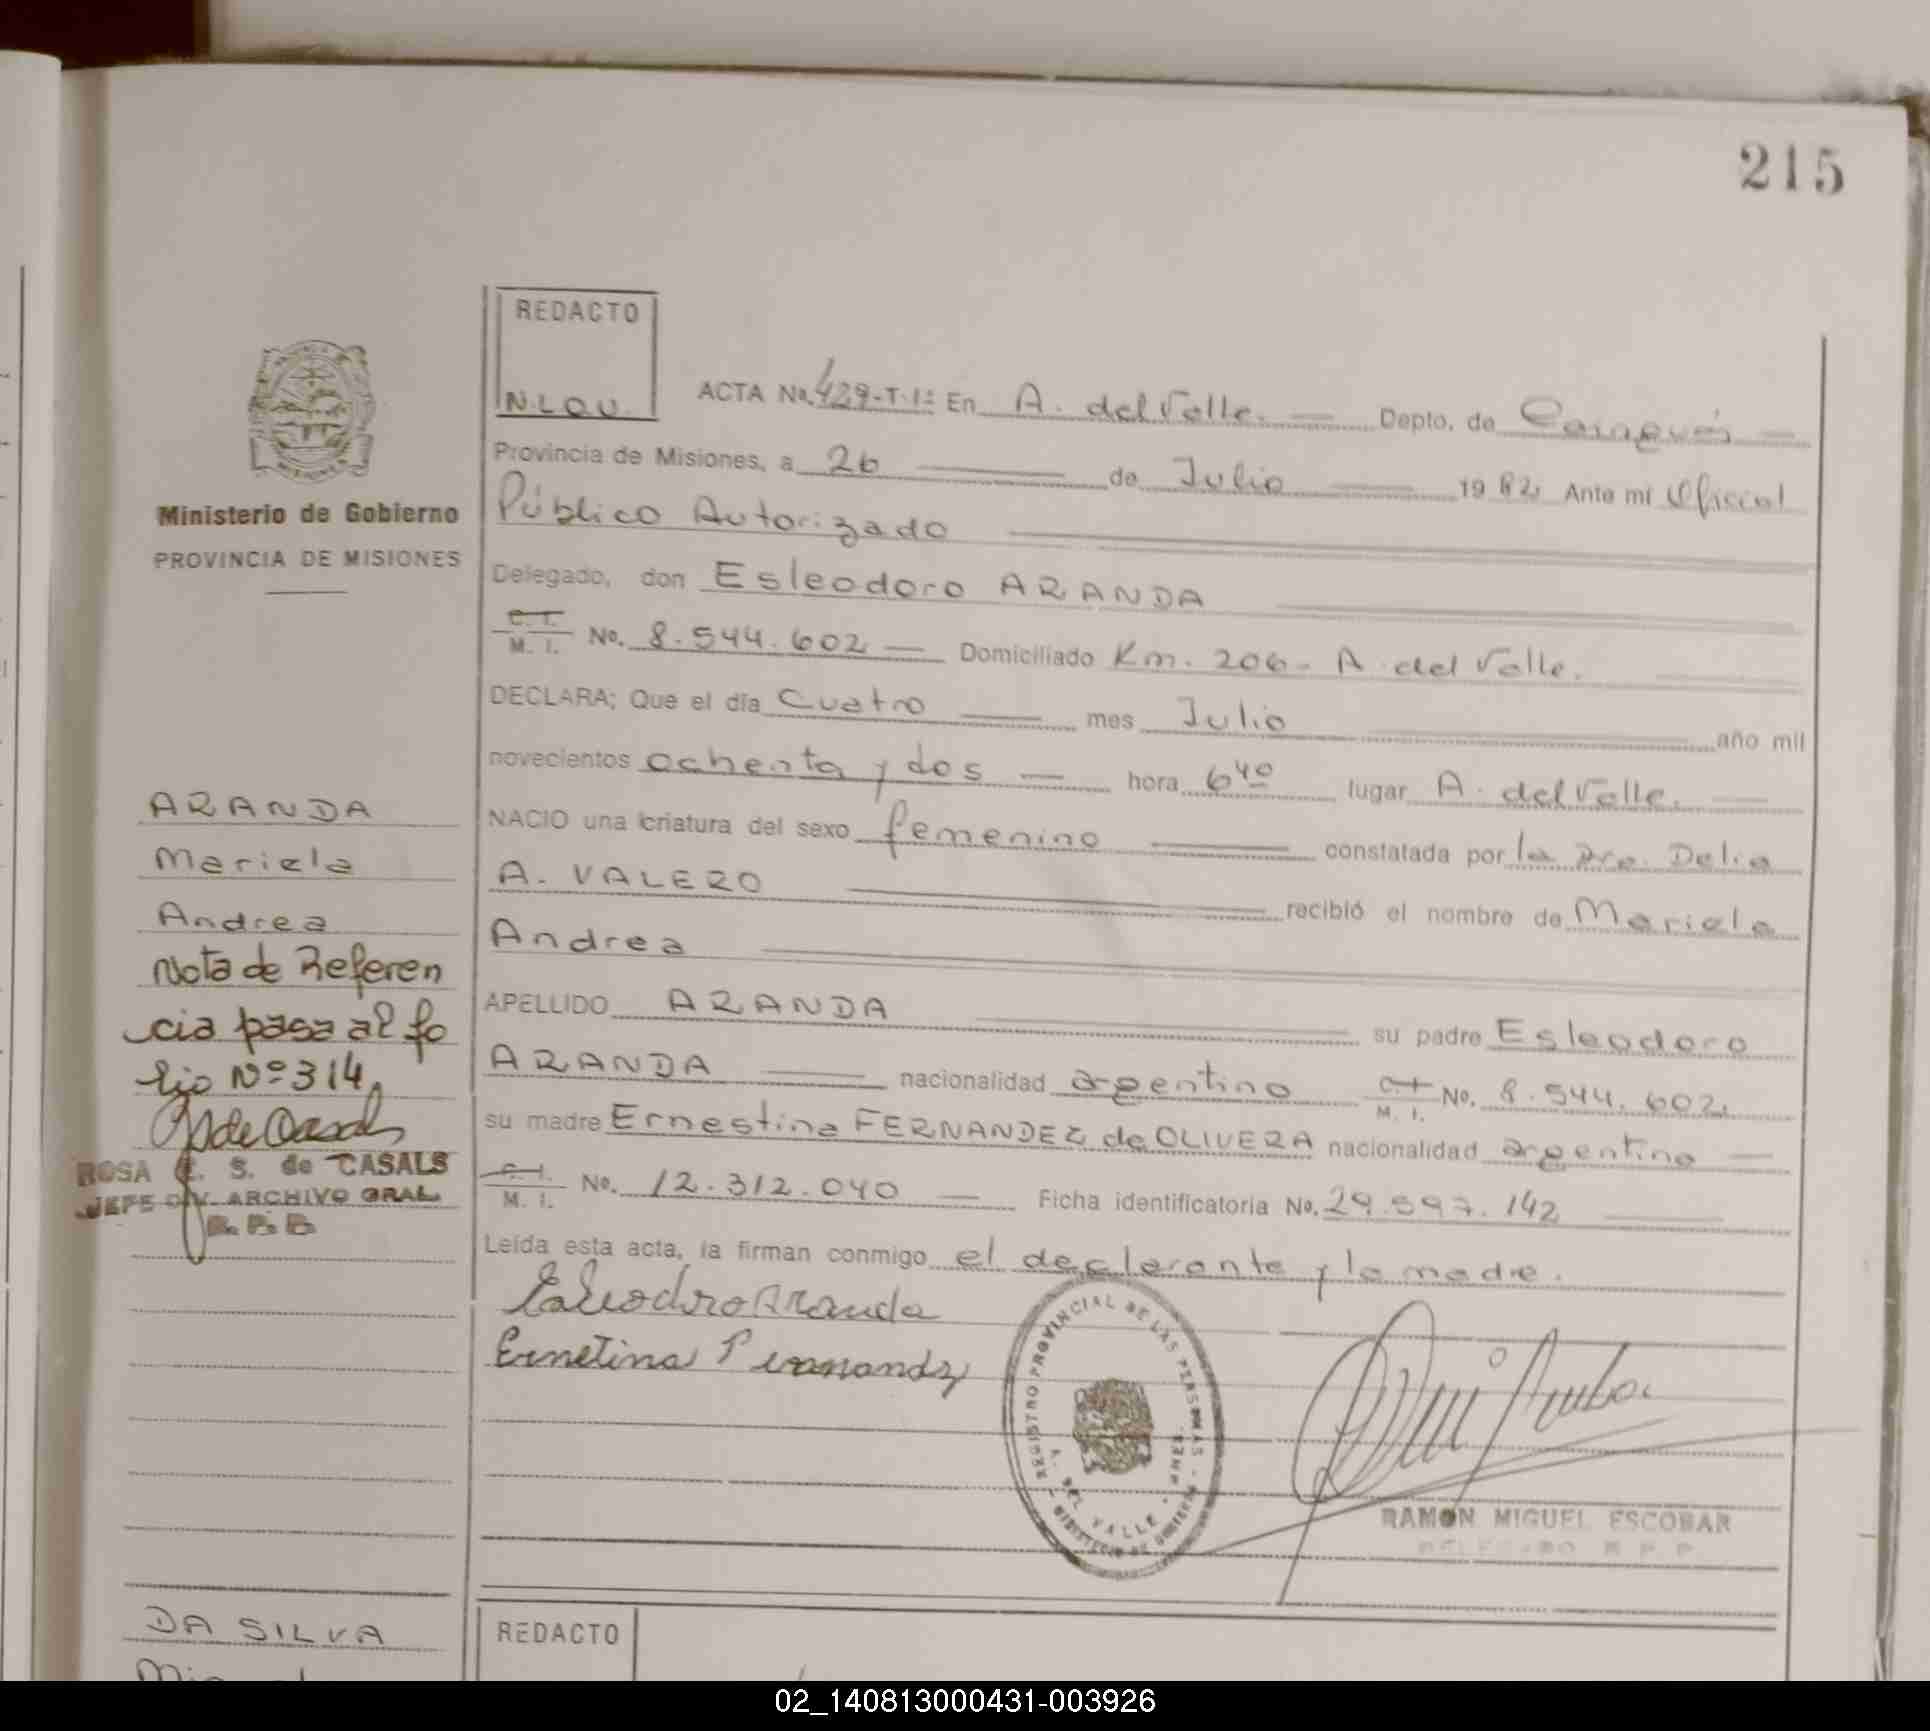 215
REDACTO
N.L.O.U.
ACTA No. 429-T.1º En A. del Valle. Depto. de Cainguás
Provincia de Misiones, a 26 de Julio 1982 Ante mi Oficial
Público Autorizado
Delegado, don Esleodoro ARANDA
C. I. M. I. No. 8.544.602 Domiciliado Km. 206 - A. del Valle.
DECLARA; Que el día Cuatro mes Julio año mil
novecientos ochenta y dos hora 6 40 lugar A. del Valle.
NACIO una criatura del sexo femenino constatada por la Dra. Delia
A. VALERO recibió el nombre de Mariela
Andrea
APELLIDO ARANDA su padre Esleodoro
ARANDA nacionalidad argentino C. I. M. I. No. 8.544.602
su madre Ernestina FERNANDEZ de OLIVERA nacionalidad argentina
C. I. M. I. No. 12.312.040 Ficha identificatoria No. 29.597.142
Leída esta acta, la firman conmigo el declarante y la madre.
Esleodoro Aranda
Ernetina Fernandz
REGISTRO PROVINCIAL DE LAS PERSONAS
A. DEL VALLE
RAMON MIGUEL ESCOBAR
DELEGADO R P P
Ministerio de Gobierno
PROVINCIA DE MISIONES
ARANDA
Mariela
Andrea
Nota de Referen
cia pasa al fo
lio Nº 314
ROSA E. S. de CASALS
JEFE DIV. ARCHIVO GRAL
DA SILVA
REDACTO
02_140813000431-003926